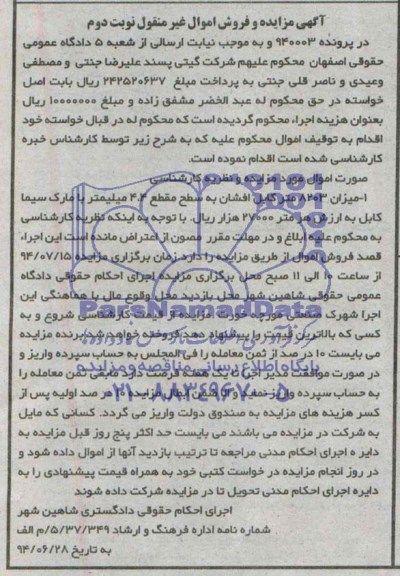 آگهی مزایده و فروش اموال غیر منقول نوبت دوم
در پرونده ۹۴۰۰۰۳ و به موجب نیابت ارسالی از شعبه ۵ دادگاه عمومی
حقوقی اصفهان محکوم علیهم شرکت گیتی پسند علیرضا جنتی و مصطفی
وعیدی و ناصر قلی جنتی به پرداخت مبلغ ۲۴۲۵۲۰۶۳۷ ریال بابت اصل
خواسته در حق محکوم له عبد الخضر مشفق زاده و مبلغ ۱۰۰۰۰۰۰۰ ریال
بعنوان هزینه اجرا، محکوم گردیده است که محکوم له در قبال خواسته خود
اقدام به توقیف اموال محکوم علیه که به شرح زیر توسط کارشناس خبره
کارشناسی شده است اقدام نموده است.
صورت اموال مورد مزایده و نظریه کارشناسی
۱-میزان ۸۲۰۳ متر کابل افشان به سطح مقطع ۴.۴ میلیمتر با مارک سیما
کابل به ارزش هر متر ۲۷۰۰۰ هزار ریال. با توجه به اینکه نظریه کارشناسی
به محکوم علیه ابلاغ و در مهلت مقرر مصون از اعتراض مانده است این اجرا،
قصد فروش اموال از طریق مزایده را دارد. زمان برگزاری مزایده ۹۴/۰۷/۱۵
از ساعت ۱۰ الی ۱۱ صبح محل برگزاری مزایده اجرای احکام حقوقی دادگاه
عمومی حقوقی شاهین شهر محل بازدید محل وقوع مال با هماهنگی این
اجرا شهرک صنعتی مورچه خورت مزایده از قیمت کارشناسی شروع و به
کسی که بالاترین قیمت را پیشنهاد دهد فروخته خواهد شد. برنده مزایده
می بایست ۱۰ در صد از ثمن معامله را فی المجلس به حساب سپرده واریز و
در صورت موافقت مدیر اجرا یک هفته فرصت دارد مابقی ثمن معامله را
به حساب سپرده واریز نماید و الا ضمن ابطال مزایده ۱۰ در صد اولیه پس از
کسر هزینه های مزایده به صندوق دولت واریز می گردد. کسانی که مایل
به شرکت در مزایده می باشند می بایست حد اکثر پنج روز قبل مزایده به
دایر ه اجرای احکام مدنی مراجعه تا ترتیب بازدید آنها از اموال داده شود و
در روز انجام مزایده در خواست کتبی خود به همراه قیمت پیشنهادی را به
دایره اجرای احکام مدنی تحویل تا در مزایده شرکت داده شوند
اجرای احکام حقوقی دادگستری شاهین شهر
شماره نامه اداره فرهنگ و ارشاد ۵/۳۷/۳۴۹/م الف
به تاریخ ۹۴/۰۶/۲۸
ParsNamadData
پایگاه اطلاع رسانی مناقصه و مزایده
۰۲۱-۸۸۳۴۹۶۷۰-۵